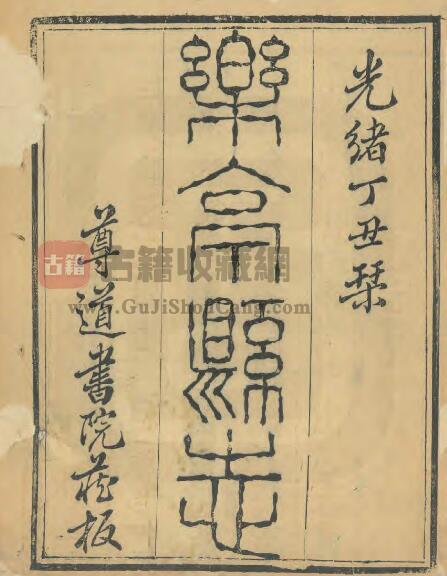 光緒丁丑栞
樂亭縣志
尊道書院藏板
古籍 古籍收藏網
www.GuJiShouCang.com